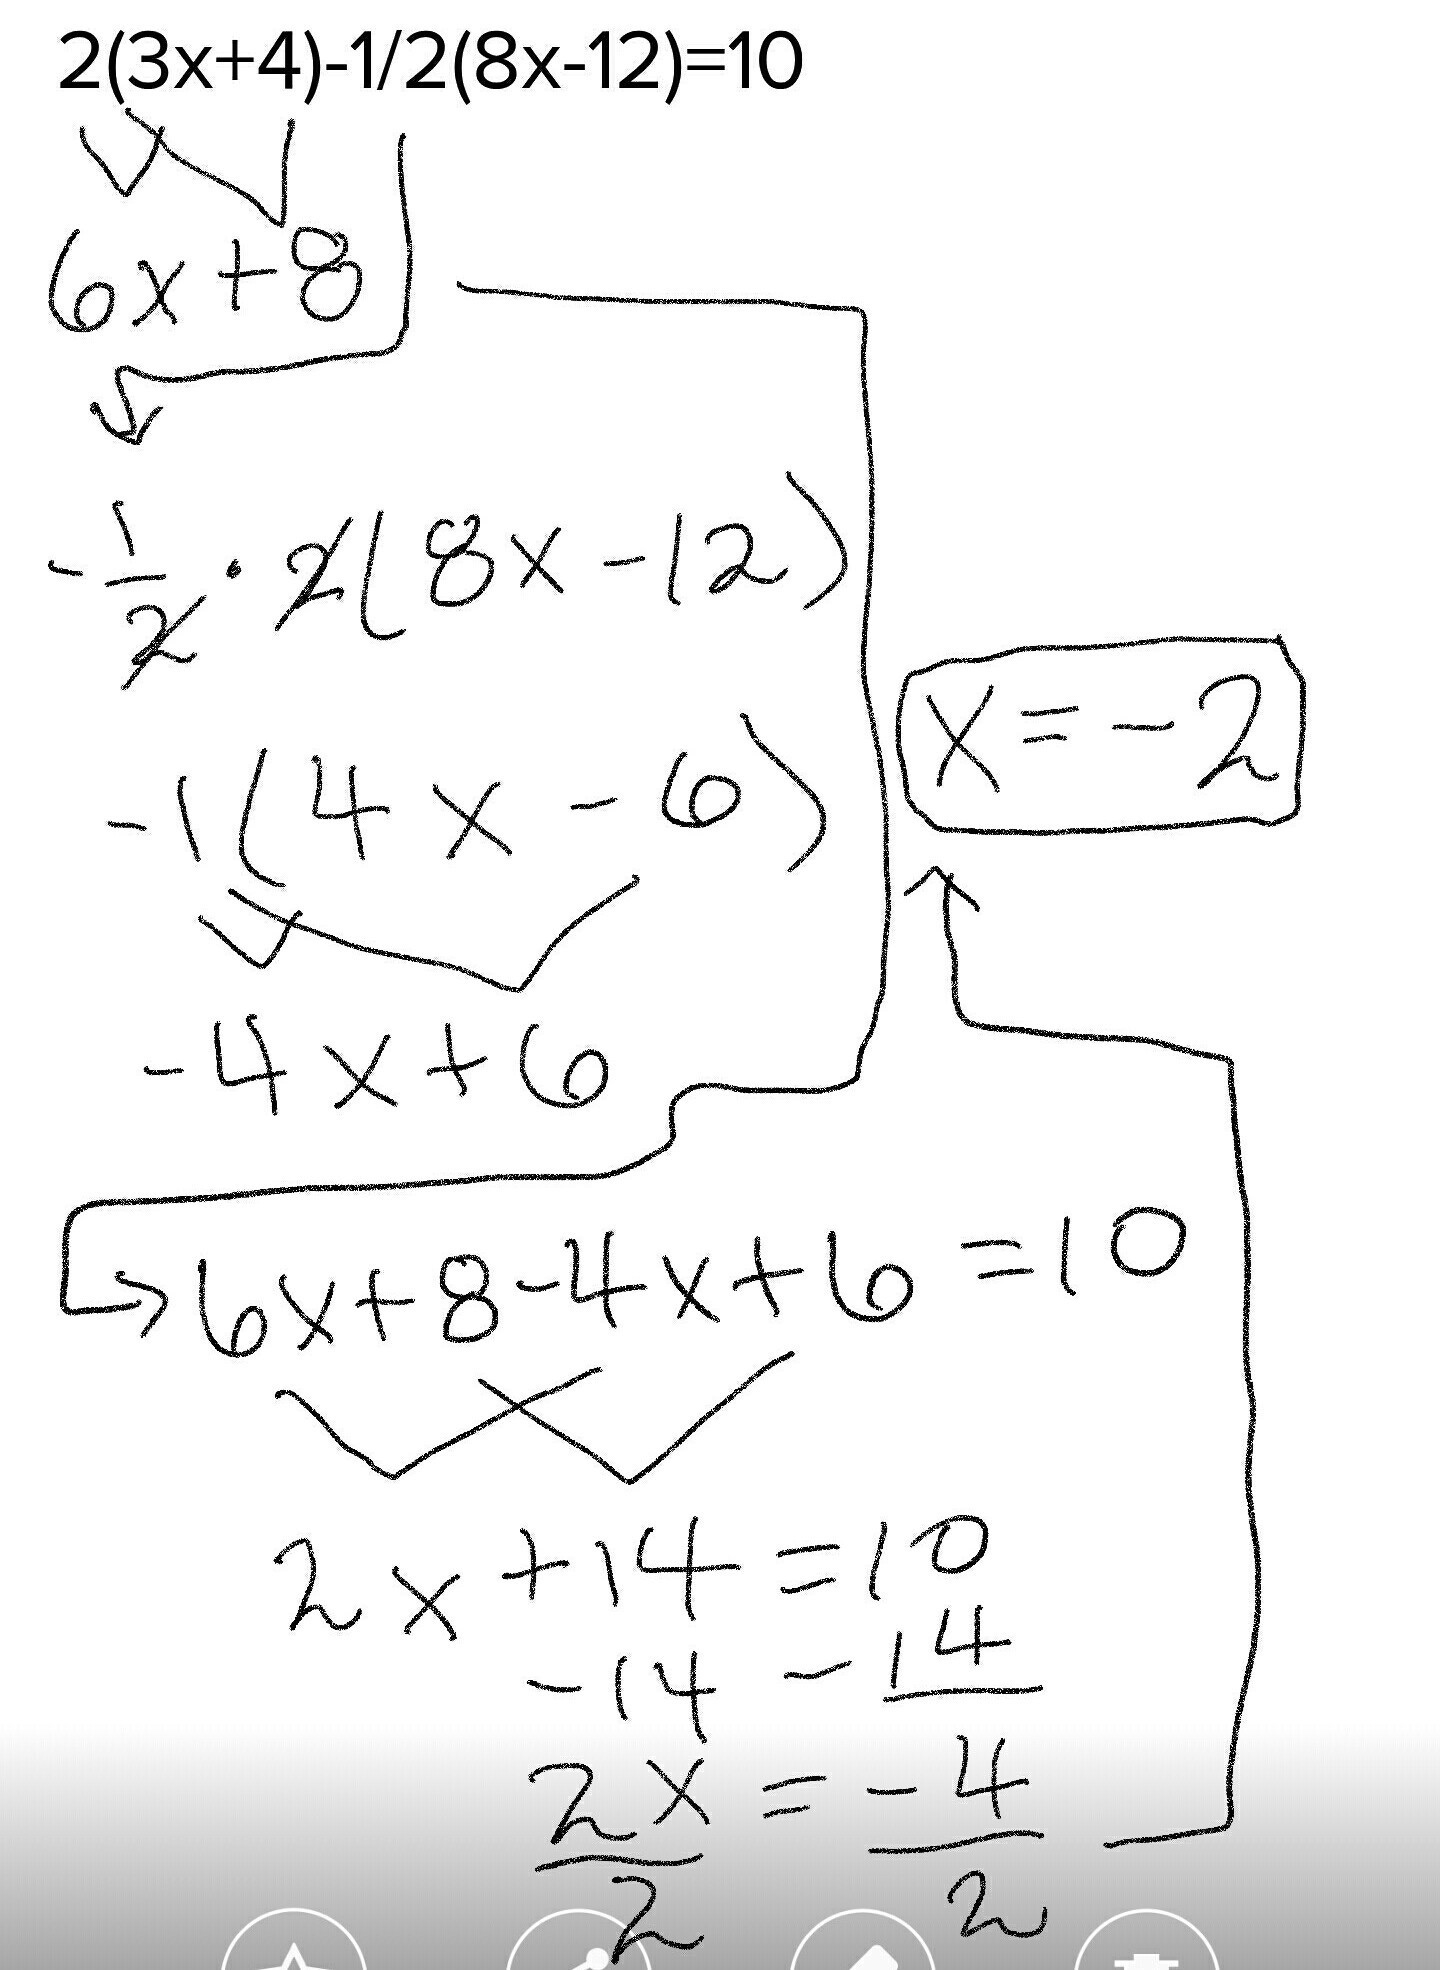 2(3x+4)-1/2(8x-12)=10
6x+8
-1/2 · 2(8x-12)
-1(4x-6)
-4x+6
6x+8-4x+6=10
2x+14=10
-14 -14
2x = -4
2 2
x=-2